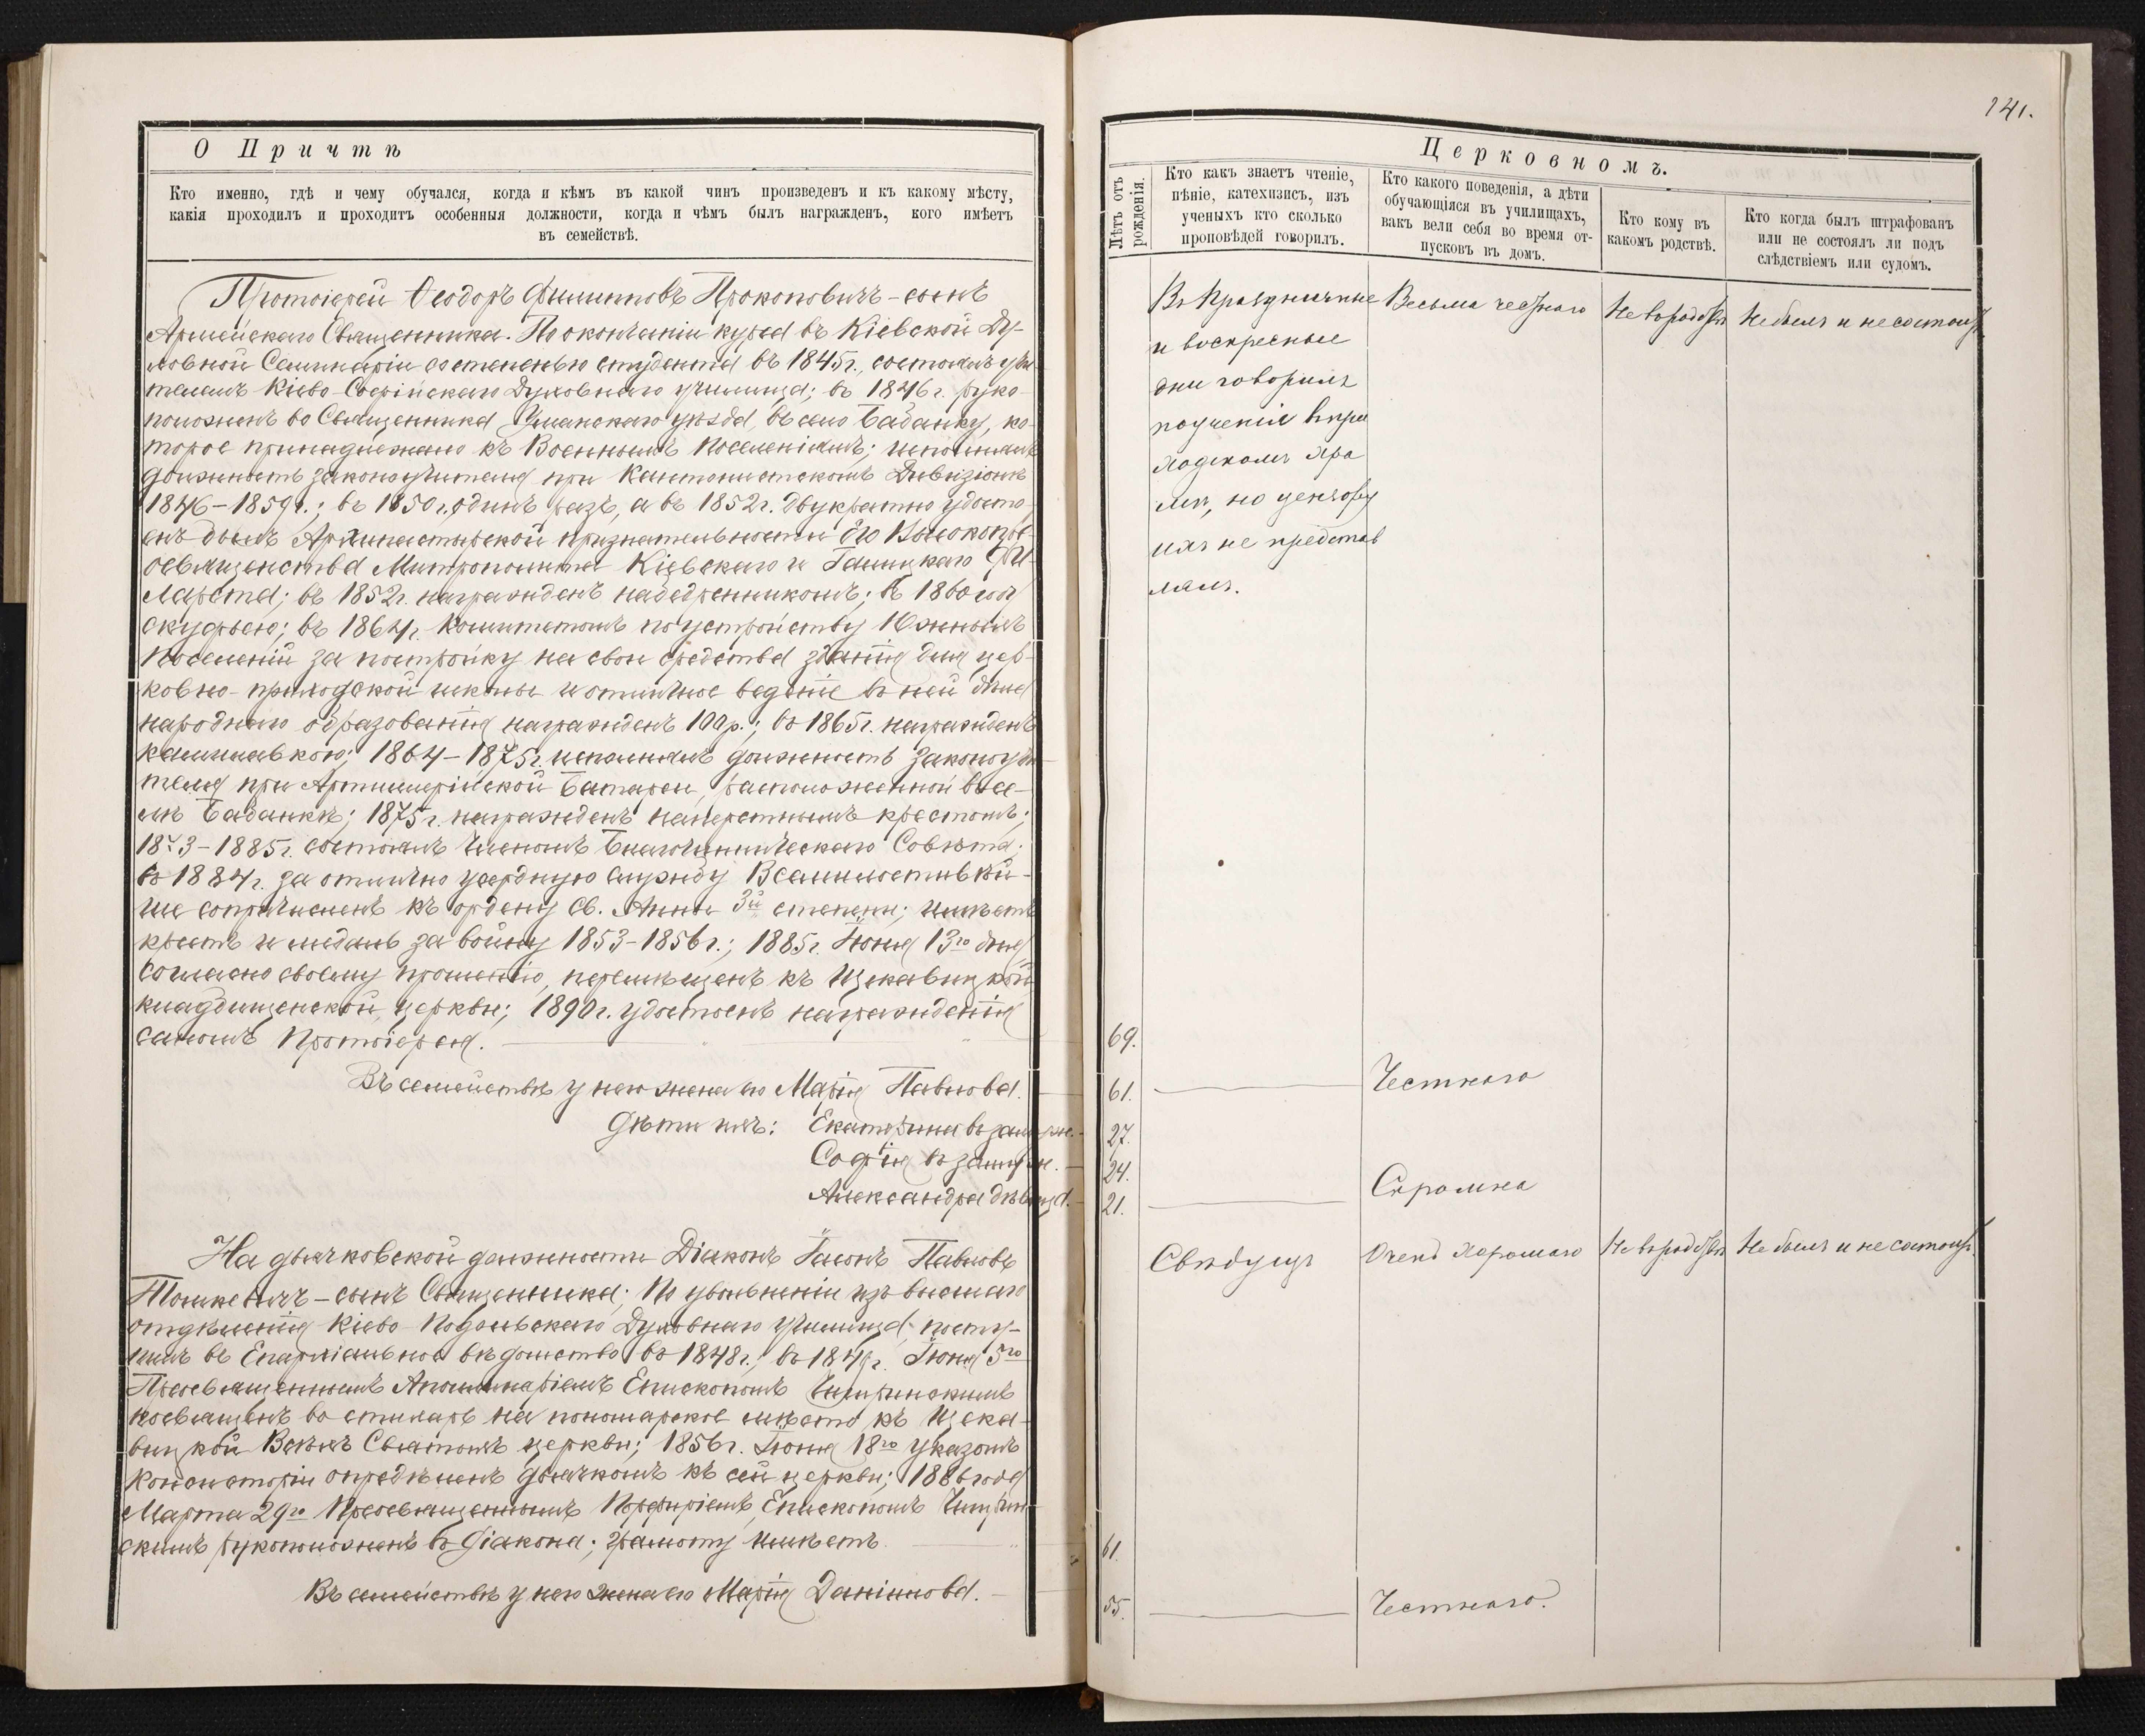 О Причтѣ
Кто именно, гдѣ и чему обучался, когда и кѣмъ въ какой чинъ произведенъ и къ какому мѣсту,
какія проходилъ и проходитъ особенныя должности, когда и чѣмъ былъ награжденъ, кого имѣетъ
въ семействѣ.
Протоіерей Ѳеодоръ Филипповъ Прокоповичъ – сынъ
Армейскаго Священника. По окончаніи курса въ Кіевской Ду-
ховной Семинаріи со степенью студента въ 1845 г., состоялъ учи
телемъ Кіево-Софійскаго Духовнаго училища; въ 1846 г. руко-
положенъ во Священника Уманскаго уѣзда, въ село Бабанку, ко-
торое принадлежало къ Военнымъ Поселеніямъ; исполнялъ
должность законоучителя при Кантонистскомъ Дивизіонѣ
1846–1859 г.; въ 1850 г. одинъ разъ, а въ 1852 г. двукратно удосто-
енъ былъ Архипастырской признательности Его Высокопре-
освященства Митрополита Кіевскаго и Галицкаго Фи-
ларета; въ 1852 г. награжденъ набедренникомъ; въ 1860 год
скуфьею; въ 1864 г. Комитетомъ по устройству Южныхъ
Поселеній за постройку на свои средства зданія для цер-
ковно-приходской школы и отличное веденіе въ ней дѣла
народнаго образованія награжденъ 100 р.; въ 1865 г. награжденъ
камилавкою; 1864–1875 г. исполнялъ должность законоучи
теля при Артиллерійской Батареи, расположенной въ се-
лѣ Бабанкѣ; 1875 г. награжденъ наперстнымъ крестомъ;
1873–1885 г. состоялъ Членомъ Благочинническаго Совѣта;
въ 1884 г. за отлично усердную службу Всемилостивѣй-
ше сопричисленъ къ ордену Св. Анны 3й степени; имѣетъ
крестъ и медаль за войну 1853–1856 г.; 1885 г. Іюня 13го дня
согласно своему прошенію, перемѣщенъ къ Щекавицкой
кладбищенской церкви; 1890 г. удостоенъ награжденія
саномъ Протоіерея.
Въ семействѣ у него жена его Марія Павлова.
Дѣти ихъ: Екатерина въ замуж.
Софія въ замуж.
Александра дѣвица.
На дьячковской должности Діаконъ Іасонъ Павловъ
Тошкевичъ – сынъ Священника; По увольненіи изъ высшаго
отдѣленія Кіево-Подольскаго Духовнаго училища, посту-
пилъ въ Епархіальное вѣдомство въ 1848 г.; въ 1849 г. Іюня 5го
Преосвященнымъ Аполлинаріемъ Епископомъ Чигиринскимъ
посвященъ во стихарь на пономарское мѣсто къ Щека-
вицкой Всѣхъ Святыхъ церкви; 1856 г. Іюня 18го указомъ
Консисторіи опредѣленъ дьячкомъ къ сей церкви; 1886 года
Марта 29го Преосвященнымъ Порфиріемъ, Епископомъ Чигирин-
скимъ рукоположенъ въ Діакона; грамоту имѣетъ.
Въ семействѣ у него жена его Марія Даніилова.
141.
Церковномъ.
Лѣтъ отъ
рожденія.
Кто какъ знаетъ чтеніе,
пѣніе, катехизисъ, изъ
ученыхъ кто сколько
проповѣдей говорилъ.
Кто какого поведенія, а дѣти
обучающіяся въ училищахъ,
какъ вели себя во время от-
пусковъ въ домъ.
Кто кому въ
какомъ родствѣ.
Кто когда былъ штрафованъ
или не состоялъ ли подъ
слѣдствіемъ или судомъ.
Въ Праздничные
и воскресные
дни говорилъ
поученія въ при
ходскомъ хра
мѣ, но цензору
ихъ не представ
лялъ.
Весьма честнаго
Не въ родствѣ
Не былъ и не состоитъ
69.
61. Честнаго
27.
24.
21. Скромна
Свѣдущъ
Очень хорошаго
Не въ родствѣ
Не былъ и не состоитъ.
61.
55. Честнаго.